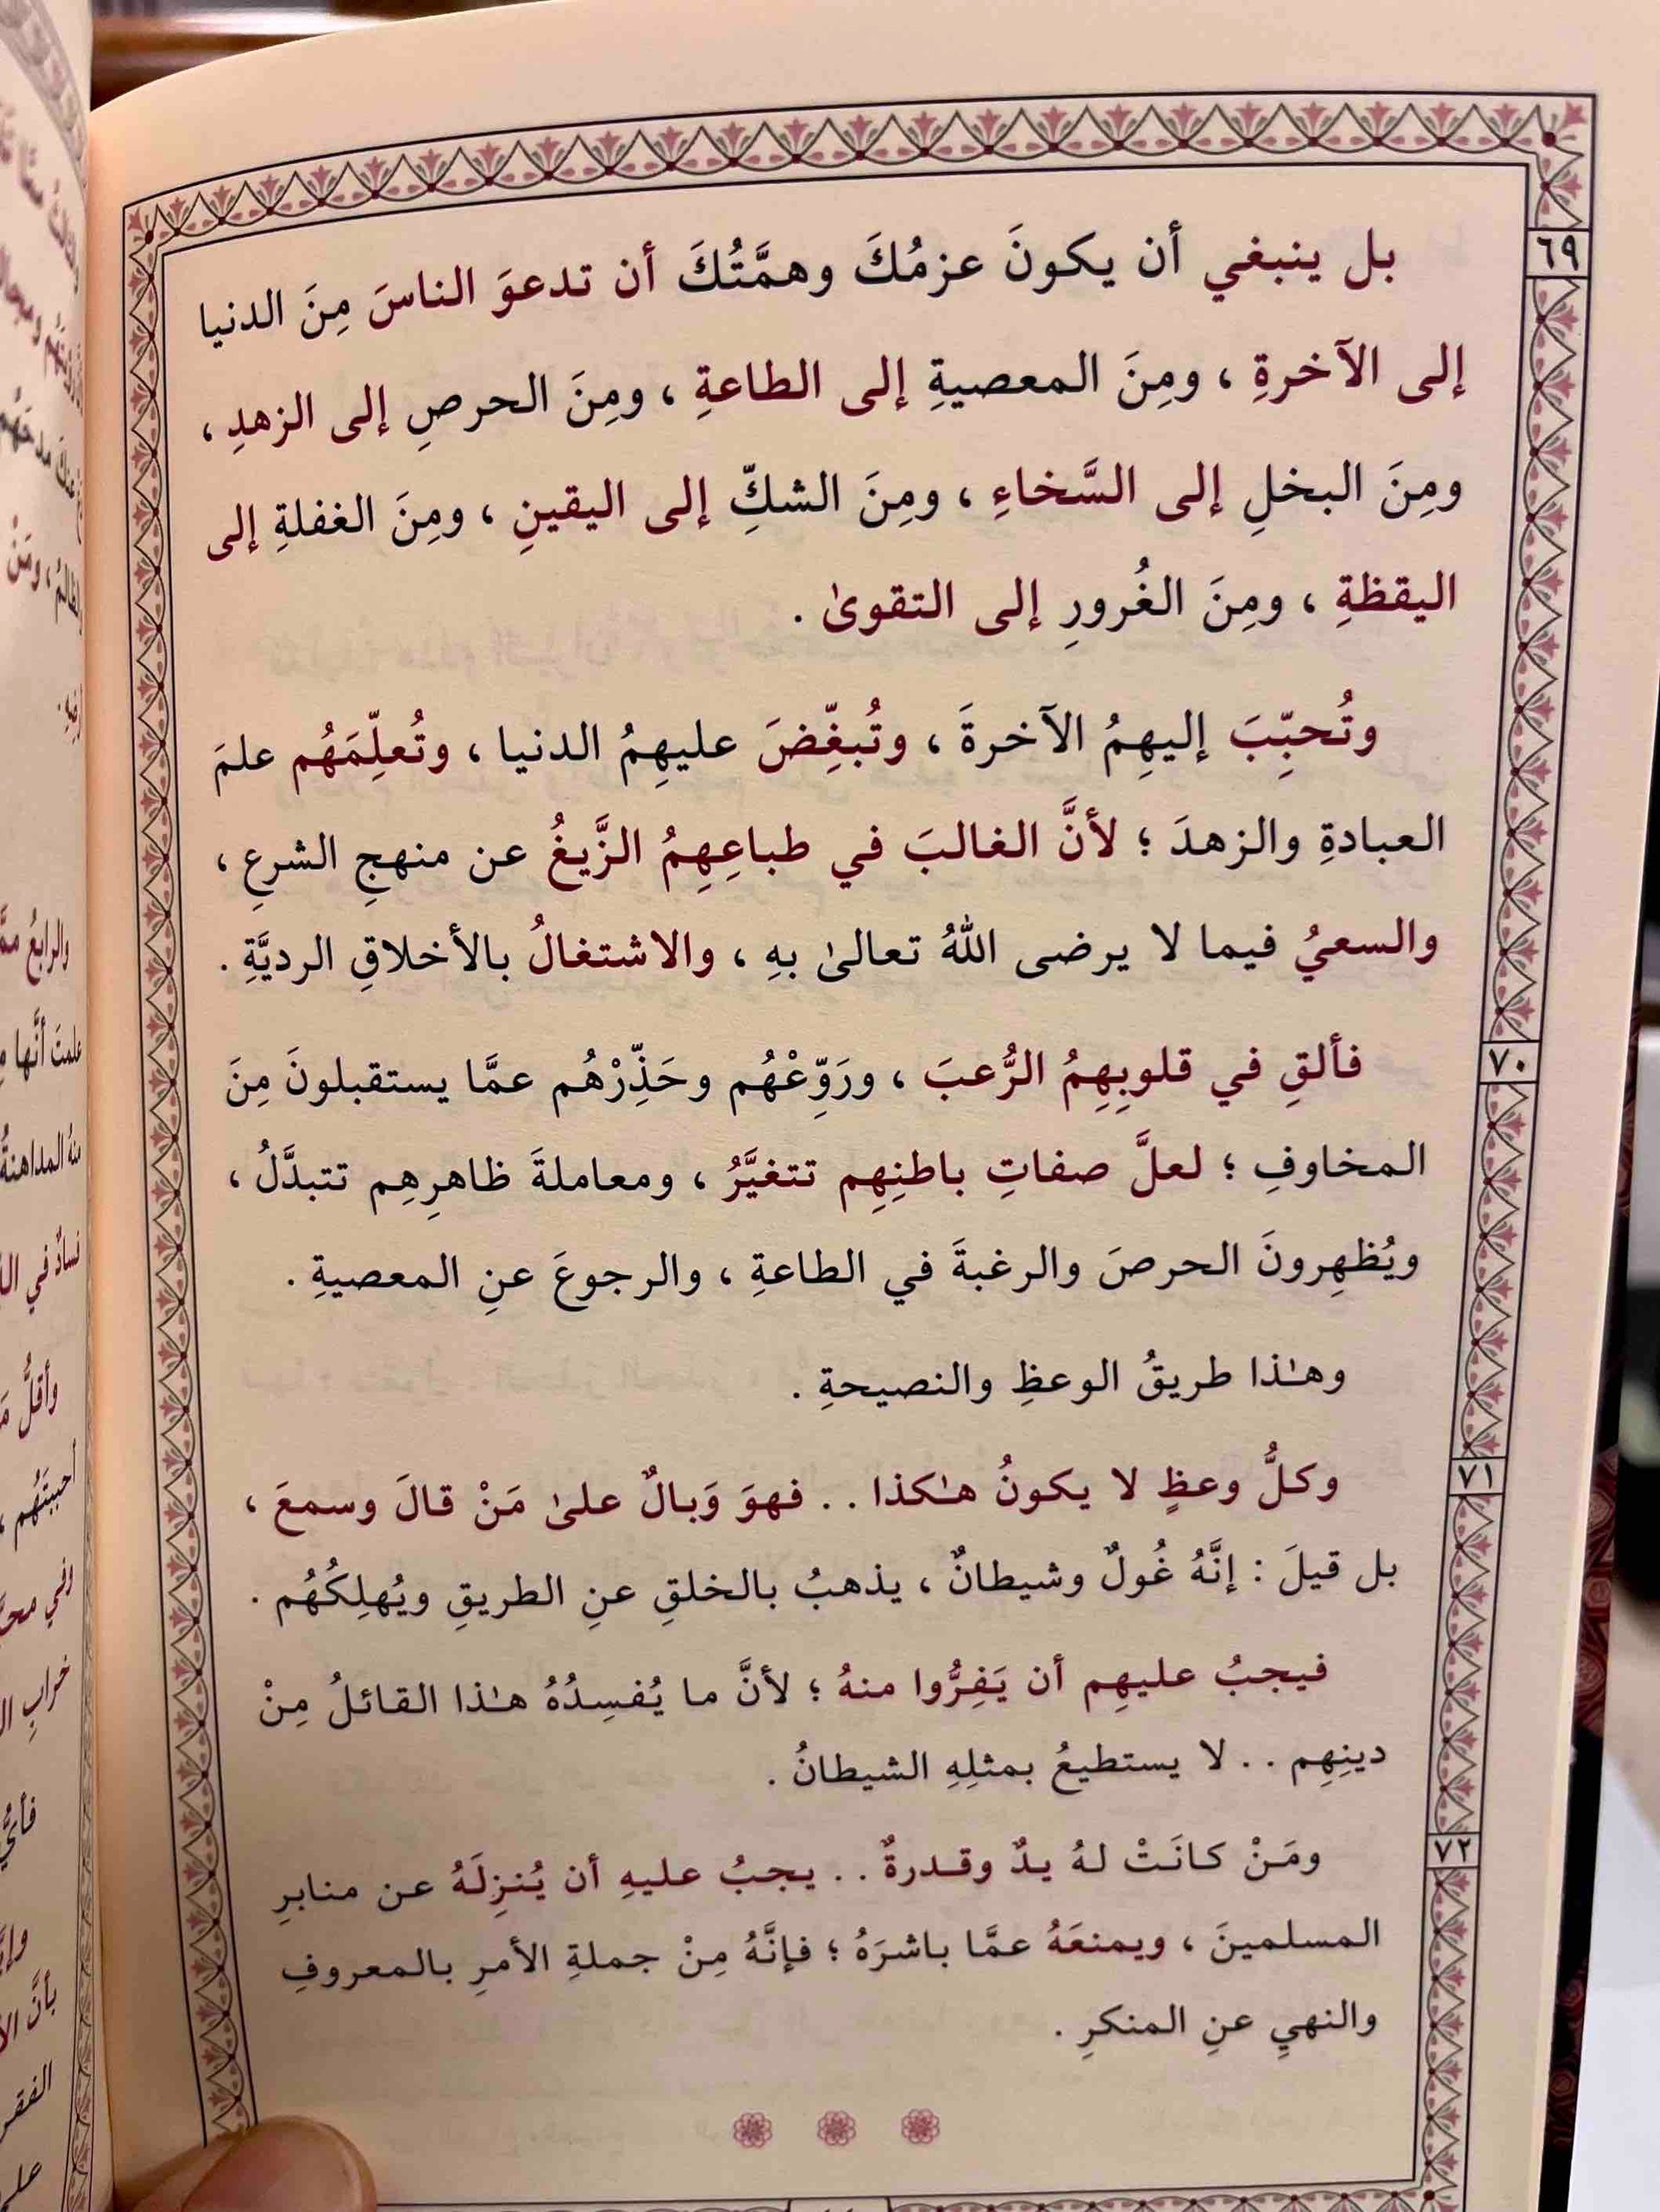 ٦٩
بل ينبغي أن يكونَ عزمُكَ وهمَّتُكَ أن تدعوَ الناسَ مِنَ الدنيا
إلى الآخرةِ ، ومِنَ المعصيةِ إلى الطاعةِ ، ومِنَ الحرصِ إلى الزهدِ ،
ومِنَ البخلِ إلى السَّخاءِ ، ومِنَ الشكِّ إلى اليقينِ ، ومِنَ الغفلةِ إلى
اليقظةِ ، ومِنَ الغُرورِ إلى التقوىٰ .
وتُحبِّبَ إليهِمُ الآخرةَ ، وتُبغِّضَ عليهِمُ الدنيا ، وتُعلِّمَهُم علمَ
العبادةِ والزهدَ ؛ لأنَّ الغالبَ في طباعِهِمُ الزَّيغُ عن منهجِ الشرعِ ،
والسعيُ فيما لا يرضى اللهُ تعالىٰ بهِ ، والاشتغالُ بالأخلاقِ الرديَّةِ .
٧٠
فألقِ في قلوبِهِمُ الرُّعبَ ، ورَوِّعْهُم وحَذِّرْهُم عمَّا يستقبلونَ مِنَ
المخاوفِ ؛ لعلَّ صفاتِ باطنِهِم تتغيَّرُ ، ومعاملةَ ظاهرِهِم تتبدَّلُ ،
ويُظهِرونَ الحرصَ والرغبةَ في الطاعةِ ، والرجوعَ عنِ المعصيةِ .
وهـٰذا طريقُ الوعظِ والنصيحةِ .
٧١
وكلُّ وعظٍ لا يكونُ هـٰكذا . . فهوَ وَبالٌ علىٰ مَنْ قالَ وسمعَ ،
بل قيلَ : إنَّهُ غُولٌ وشيطانٌ ، يذهبُ بالخلقِ عنِ الطريقِ ويُهلِكُهُم .
فيجبُ عليهِم أن يَفِرُّوا منهُ ؛ لأنَّ ما يُفسِدُهُ هـٰذا القائلُ مِنْ
دينِهِم . . لا يستطيعُ بمثلِهِ الشيطانُ .
٧٢
ومَنْ كانَتْ لهُ يدٌ وقدرةٌ . . يجبُ عليهِ أن يُنزِلَهُ عن منابرِ
المسلمينَ ، ويمنعَهُ عمَّا باشرَهُ ؛ فإنَّهُ مِنْ جملةِ الأمرِ بالمعروفِ
والنهيِ عنِ المنكرِ .